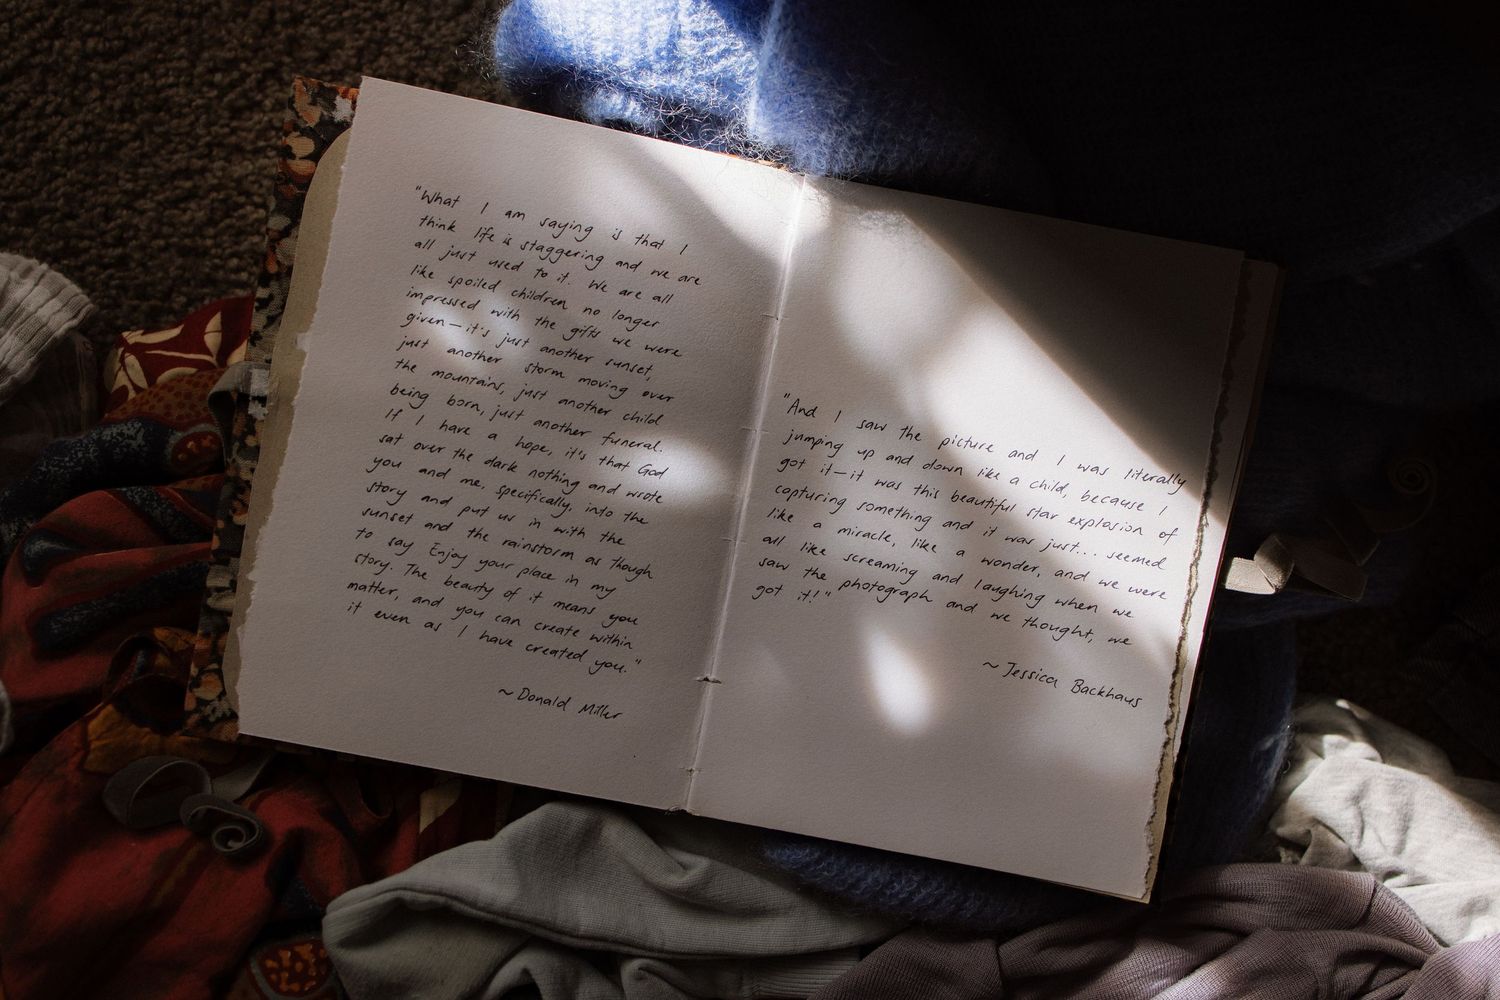 "What I am saying is that I
think life is staggering and we are
all just used to it. We are all
like spoiled children no longer
impressed with the gifts we were
given—it's just another sunset,
just another storm moving over
the mountains, just another child
being born, just another funeral.
If I have a hope, it's that God
sat over the dark nothing and wrote
you and me, specifically, into the
story and put us in with the
sunset and the rainstorm as though
to say Enjoy your place in my
story. The beauty of it means you
matter, and you can create within
it even as I have created you."
~ Donald Miller
"And I saw the picture and I was literally
jumping up and down like a child, because I
got it—it was this beautiful star explosion of
capturing something and it was just... seemed
like a miracle, like a wonder, and we were
all like screaming and laughing when we
saw the photograph and we thought, we
got it!"
~ Jessica Backhaus